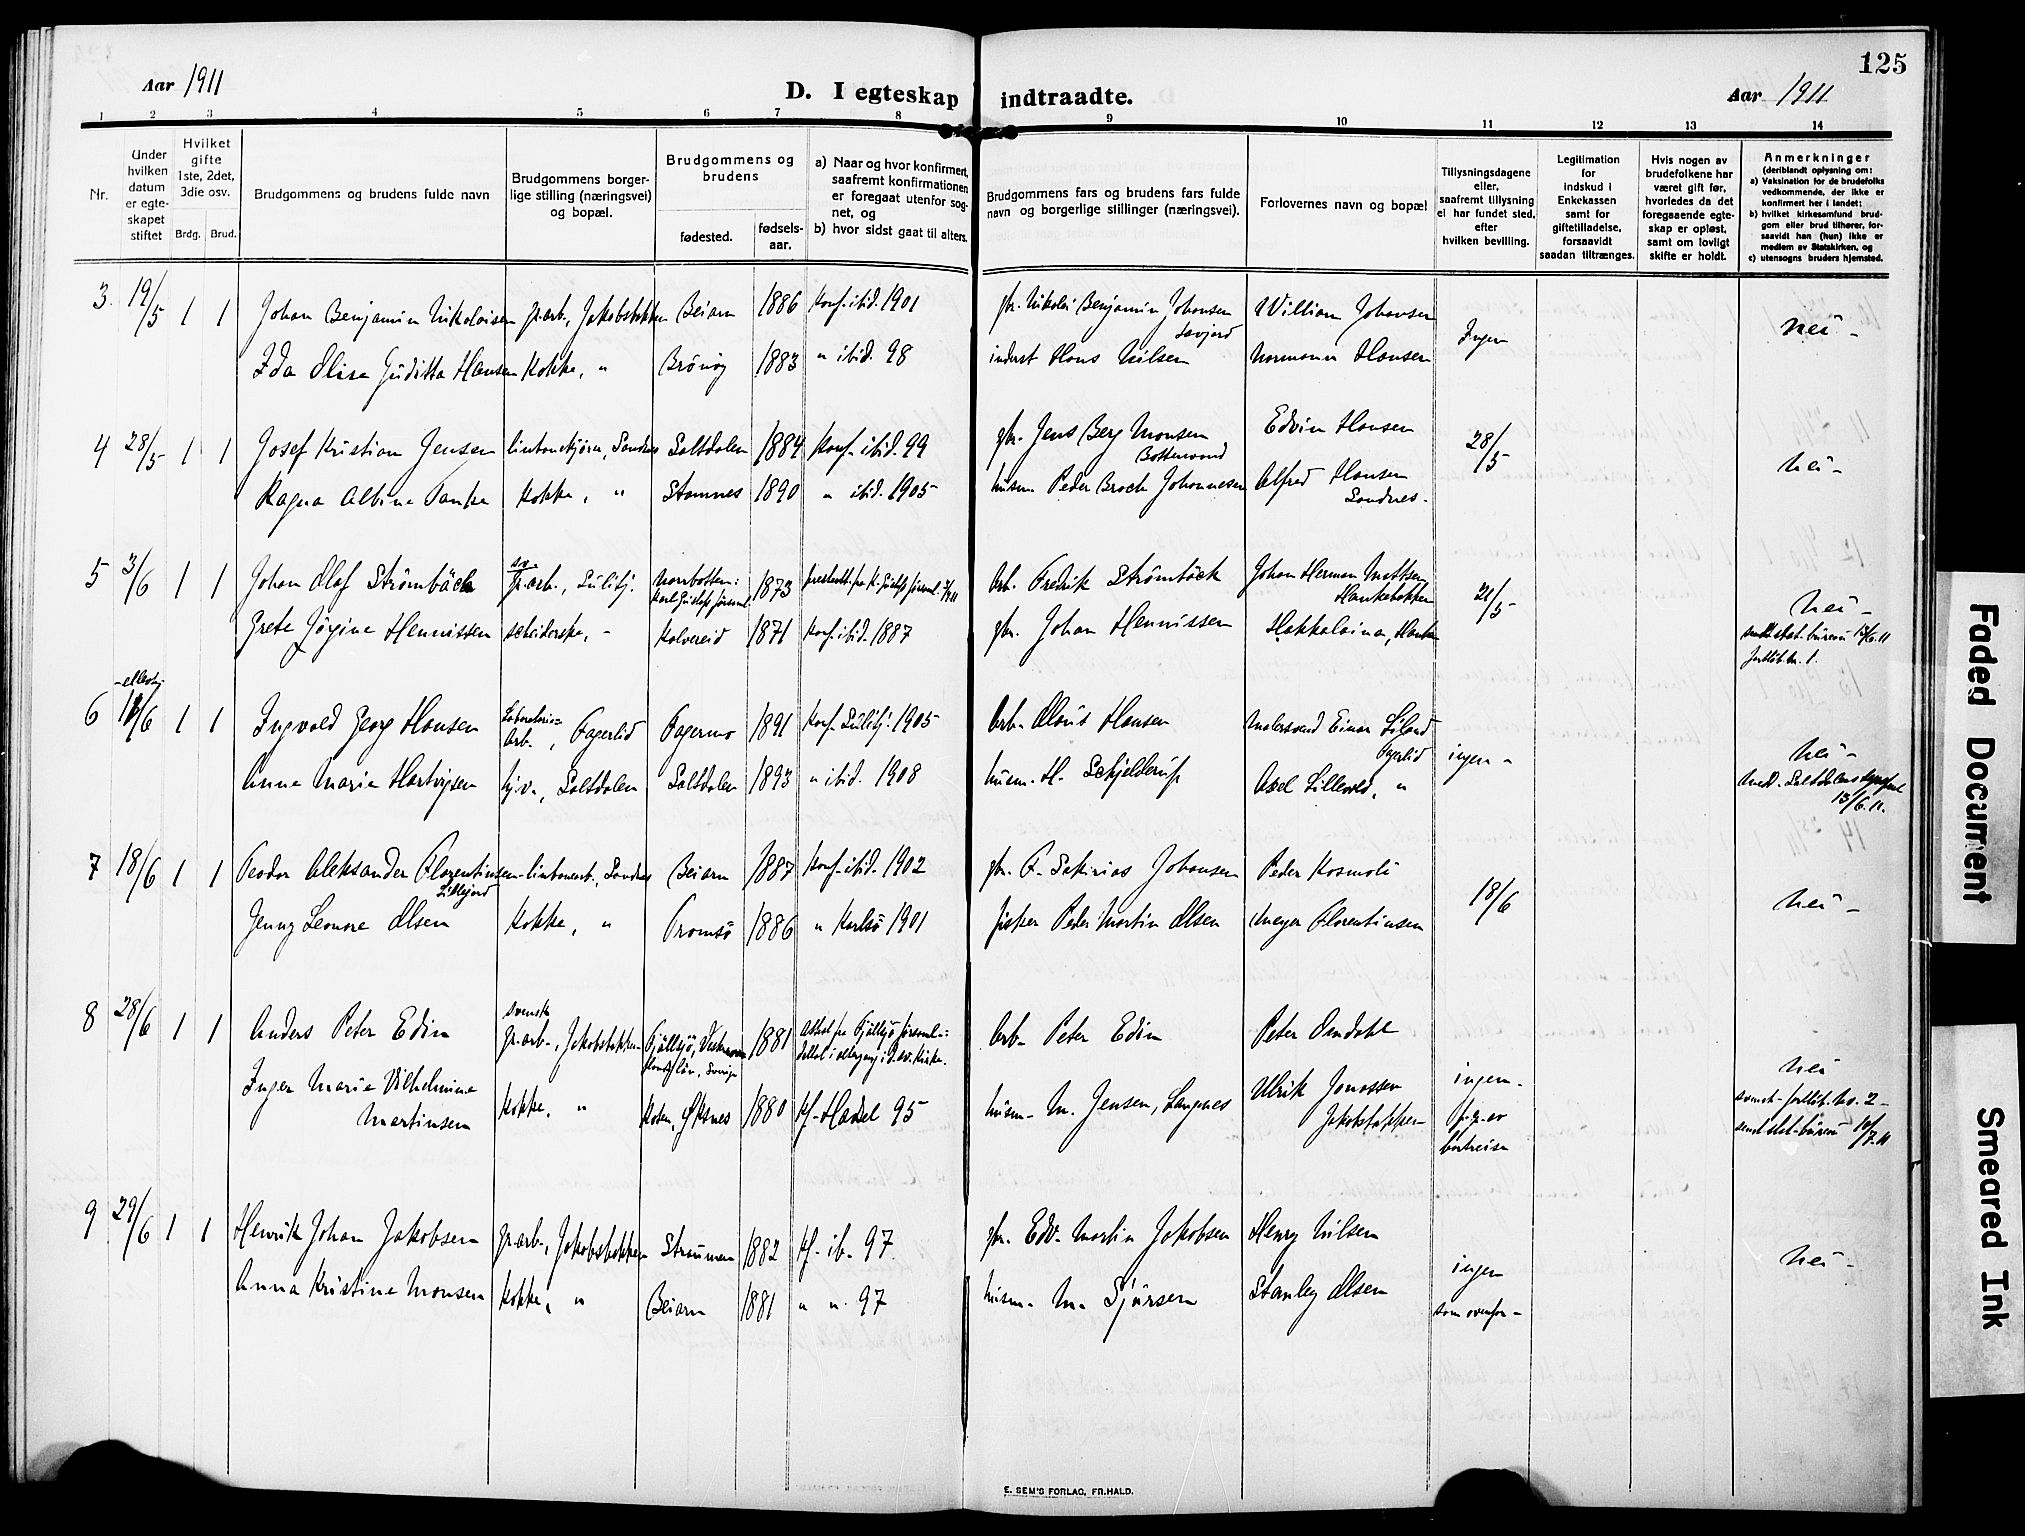 125
Aar 1911
D. I egteskap indtraadte.
Aar 1911
1 2 3 4 5 6 7 8 9 10 11 12 13 14
Nr.
Under hvilken datum er egteskapet stiftet
Hvilket gifte 1ste, 2det, 3die osv.
Brdg. Brud.
Brudgommens og brudens fulde navn
Brudgommens borgerlige stilling (næringsvei) og bopæl.
Brudgommens og brudens
fødested.
fødselsaar.
a) Naar og hvor konfirmert, saafremt konfirmationen er foregaat utenfor sognet, og
b) hvor sidst gaat til alters.
Brudgommens fars og brudens fars fulde navn og borgerlige stillinger (næringsvei).
Forlovernes navn og bopæl
Tillysningsdagene eller, saafremt tillysning ei har fundet sted, efter hvilken bevilling.
Legitimation for indskud i Enkekassen samt for giftetilladelse, forsaavidt saadan tiltrænges.
Hvis nogen av brudefolkene har været gift før, hvorledes da det foregaaende egteskap er opløst, samt om lovligt skifte er holdt.
Anmerkninger (deriblandt oplysning om:
a) Vaksination for de brudefolks vedkommende, der ikke er konfirmert her i landet;
b) hvilket kirkesamfund brudgom eller brud tilhører, forsaavidt han (hun) ikke er medlem av Statskirken, og
c) utensogns bruders hjemsted.
3. 19/5 1 1 Johan Benjamin Nikolaisen gr.arb., Jakobsbakken Beiarn 1886 Konf. ibid. 1901 gbr. Nikolai Benjamin Johansen Savjord William Johansen Ingen nei -
Ida Elise Juditta Hansen Kokke, " Brönöy 1883 " ibid. 98 inderst Hans Nilsen Normann Hansen
4 28/5 1 1 Josef Kristian Jensen linbanekjörer, Sandnes Saltdalen 1884 Konf. ibid. 99 gbr. Jens Berg Monsen Edvin Hansen 28/5 nei -
Ragna Albine Panke Kokke, " Stamnes 1890 " ibid. 1905 husm. Peder Broch Johannesen Alfred Hansen Sandnes.
5 3/6 1 1 Johan Olof Strömbäck sv. gr.arb., Sulitj. Norrbotten: 1873 Arb. Fredrik Strömbäck Johan Herman Mattsen Hankabakken 21/5 nei -
Grete Jörgine Hennissen scheiderske, - Kolvereid 1871 Konf. ibid. 1887 gbr. Johan Hennissen sendt stat. büreau 13/6.11
6 1/6 1 1 Ingvald Georg Hansen Laboratorie-arb., Fagerlid Fagermo 1891 Konf. Sulitj. 1905 Arb. Olaus Hansen Malersvend Einar Liland Fagerlid ingen - nei -
Anne Marie Hartvigsen hj.v., Saltdalen Saltdalen 1893 " ibid. 1908 husm. H. Schjelderup Axel Lillevold, " 13/6.11.
7 18/6 1 1 Teodor Aleksander Florentinsen Lillejord linbanearb., Sandnes Beiarn 1887 Konf. ibid. 1902 gbr. F. Sakirias Johansen Peder Kosmoli 18/6 nei -
Jenny Leonore Olsen Kokke, " Tromsö 1886 " Karlsö 1901 fisker Peder Martin Olsen Meyer Florentinsen
8 28/6 1 1 Anders Peter Edin svensk gr.arb., Jakobsbakken Fjällsjö, 1881 Arb. Peter Edin Peter Omdahl nei
Inger Marie Vilhelmine Martinsen Kokke, " Öksnes 1880 Kf. Hadsel 95 husm. M. Jensen, Langnes Ulrik Jonassen Jakobsbakken ingen - p.g.av bortreise sendt stat. büreau 10/7.11
9 29/6 1 1 Henrik Johan Jakobsen gr.arb., Jakobsbakken Straumen 1882 Kf. ib. 97. gbr. Edv. Martin Jakobsen Henry Nilsen ingen nei -
Anna Kristine Monsen Kokke, " Beiarn 1881 " " 97 husm. M. Sjursen Stanley Olsen som ovenfor -
E. SEM'S FORLAG, FR.HALD.
Faded Document
Smeared Ink